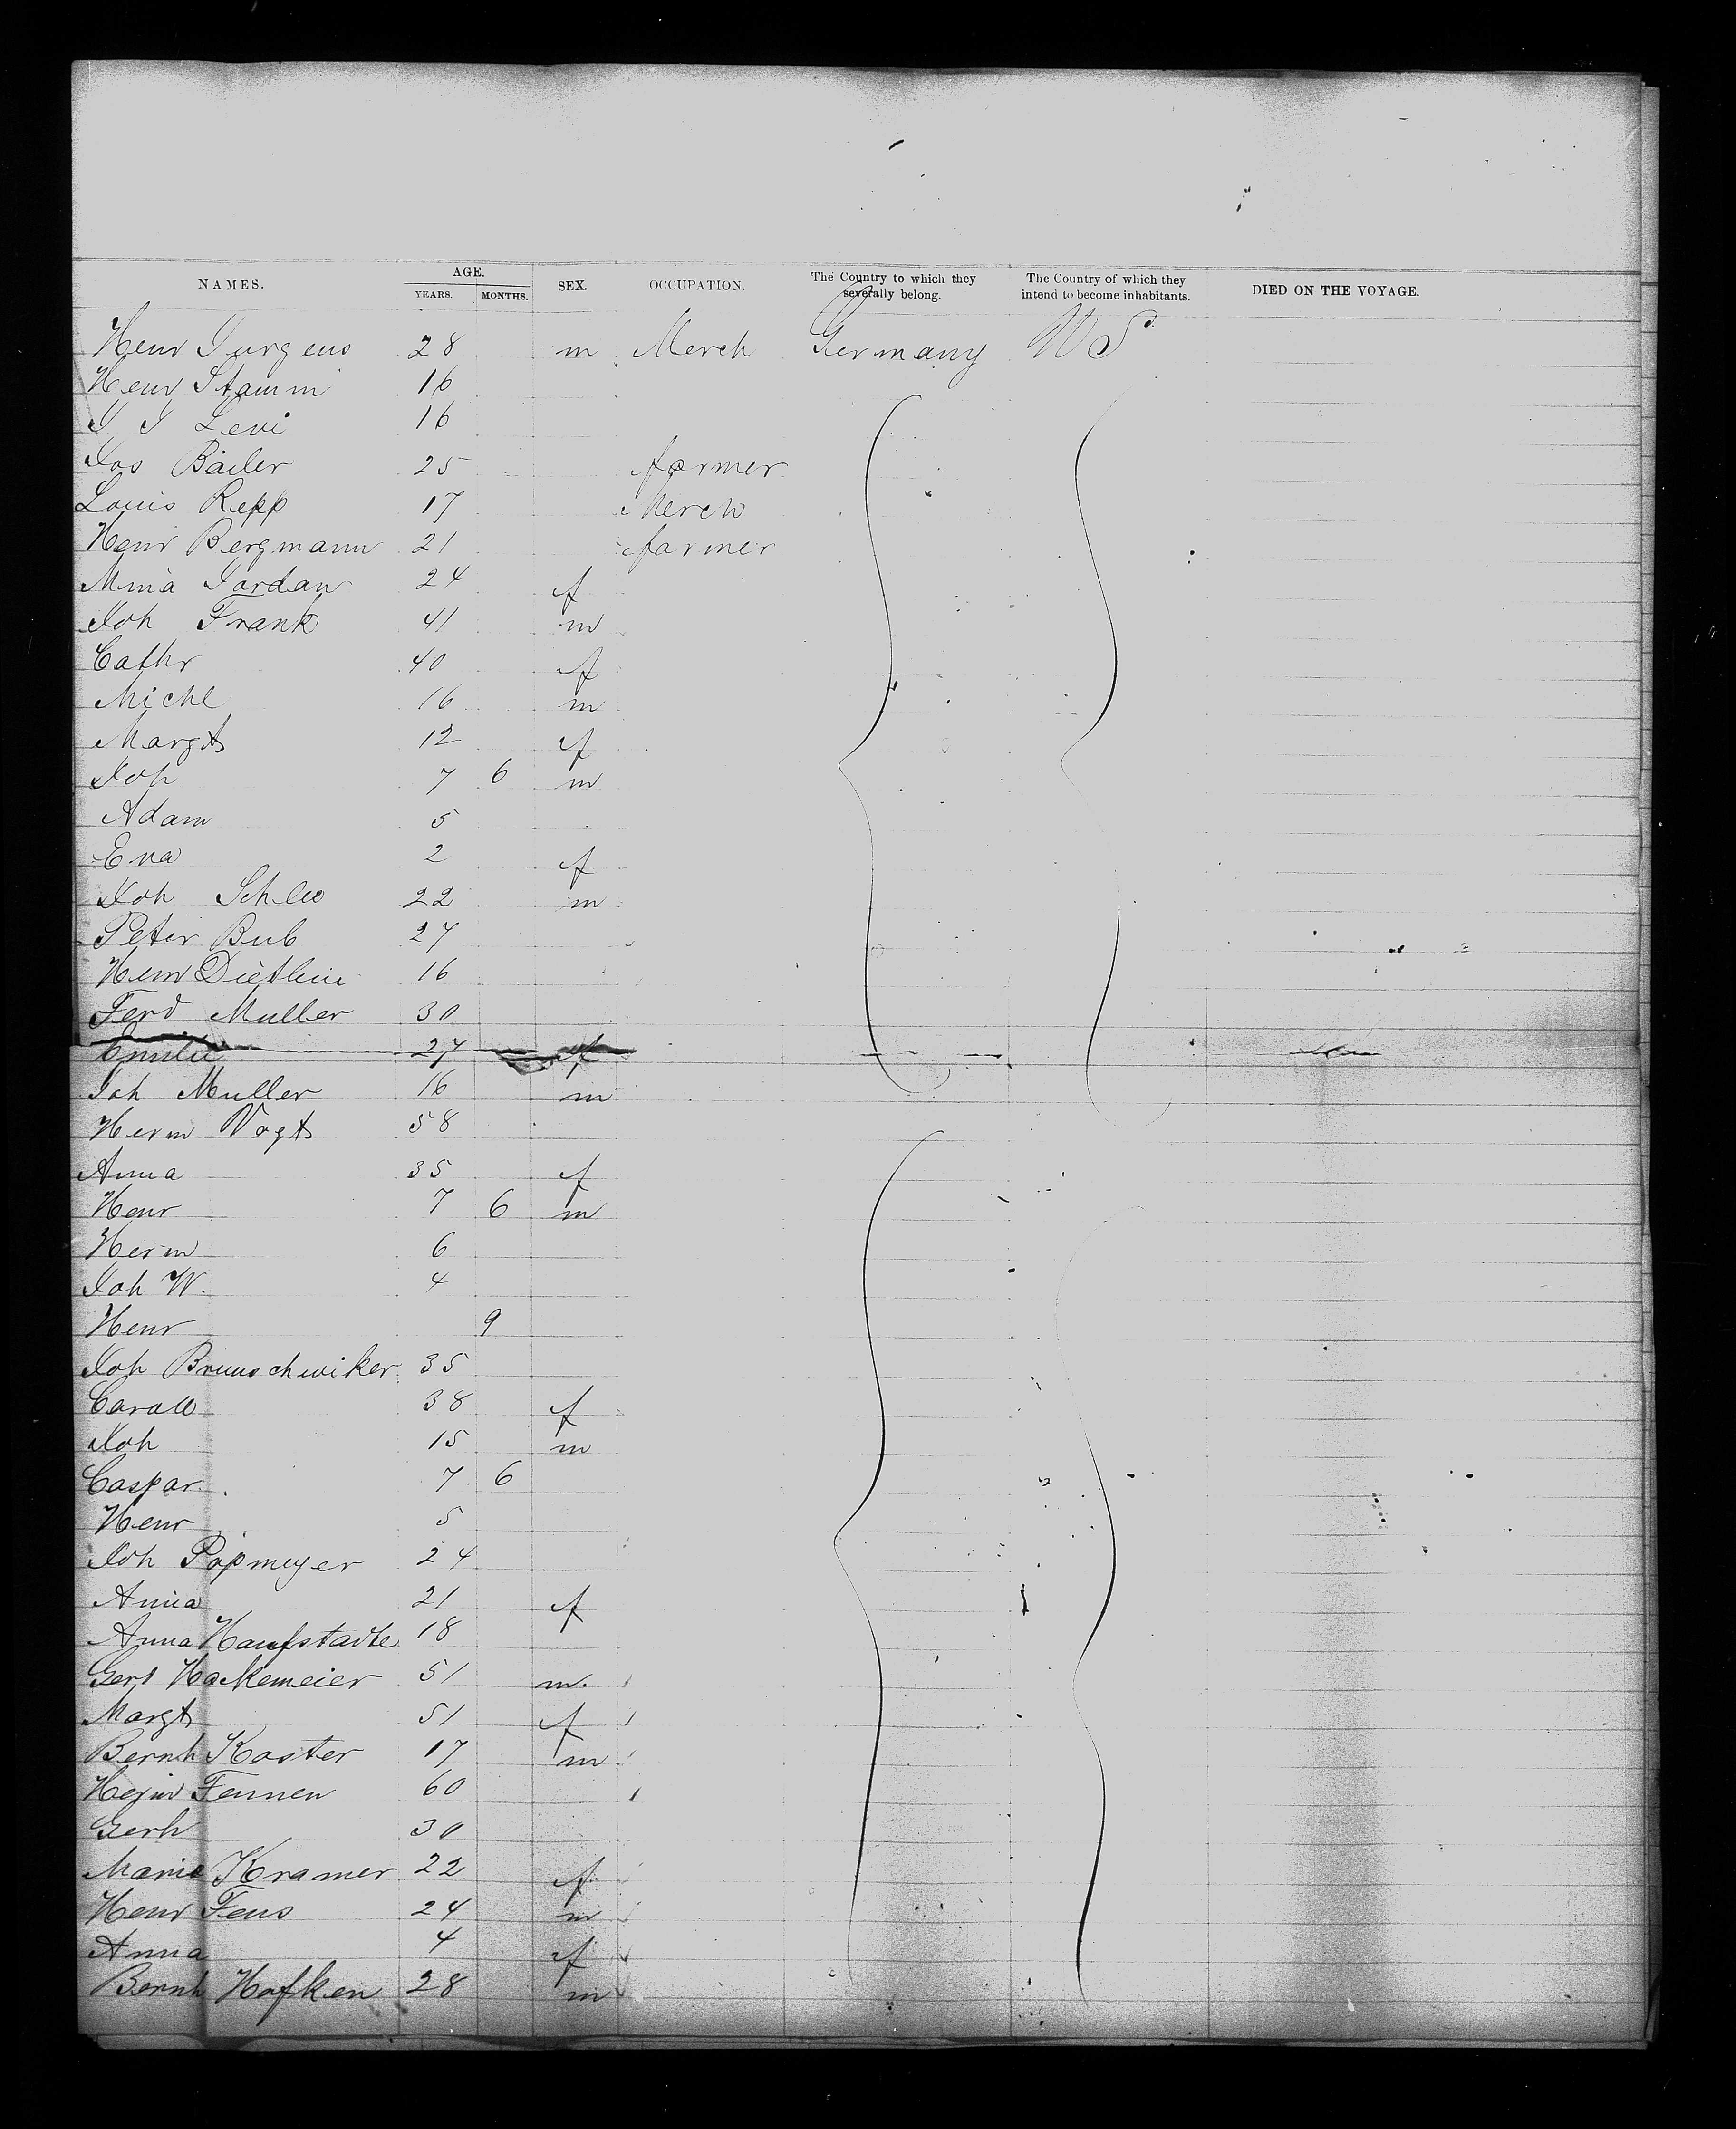 NAMES. AGE. YEARS. MONTHS. SEX. OCCUPATION. The Country to which they severally belong. The Country of which they intend to become inhabitants. DIED ON THE VOYAGE.
Henr Jurgens 28 m Merch Germany US
Henr Stamm 16
J J Levi 16
Jos Bailer 25 farmer
Louis Repp 17 Merch
Henr Bergmann 21 farmer
Mina Jordan 24 f
Joh Frank 41 m
Cathr 40 f
Michl 16 m
Margt 12 f
Joh 7 6 m
Adam 5
Eva 2 f
Joh 22 m
Peter Bub 27
Henr Dietlein 16
Ferd Muller 30
Emilie 27 f
Joh Muller 16 m
Herm Vogt 58
Anna 35 f
Henr 7 6 m
Herm 6
Joh W. 4
Henr 9
Joh Brunschwiker 35
Carol 38 f
Joh 15 m
Caspar 7 6
Henr 5
Joh Popmeyer 24
Anna 21 f
Anna Haufstadte 18
Gerd Hackemeier 51 m
Margt 51 f
Bernh Koster 17 m
Fennen 60
Gerh 30
Marie Kramer 22 f
Henr Fens 24 m
Anna 4 f
Bernh Hofken 28 m